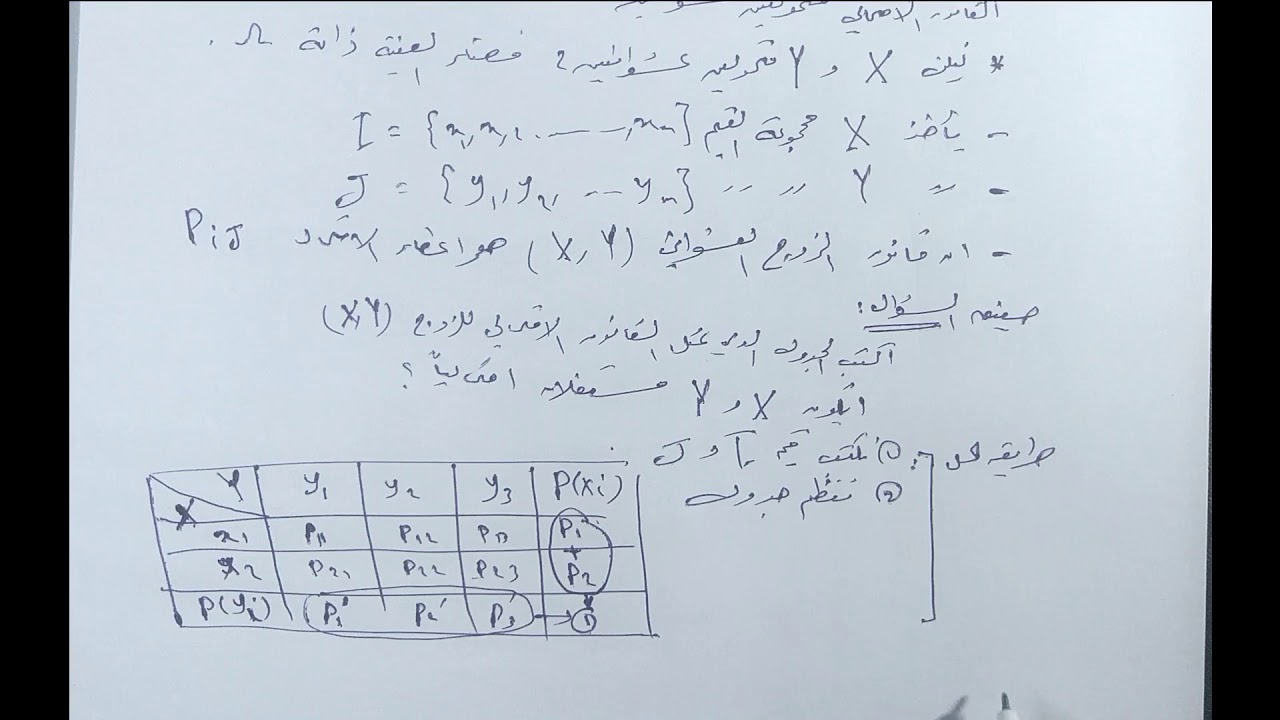 القانون الاحتمالي لمتحولين عشوائيين
* ليكن X و Y متحولين عشوائيين في فضاء العينة ذاته Ω.
- يأخذ X مجموعة القيم I = {x1, x2, ..., xn}
- 〃 Y 〃 〃 J = {y1, y2, ... ym}
- ان قانون الزوج العشوائي (X, Y) هو اعطاء الاعداد PiJ
صيغة السؤال:
اكتب الجدول الذي يمثل القانون الاحتمالي للزوج (X,Y)
ايكون X و Y مستقلان احتمالياً ؟
طريقة الحل: ① نكتب قيم I و J
② ننظم جدول
X Y y1 y2 y3 P(xi)
x1 P11 P12 P13 P1
+
x2 P21 P22 P23 P2
P(yi) P1' P2' P3' → ①